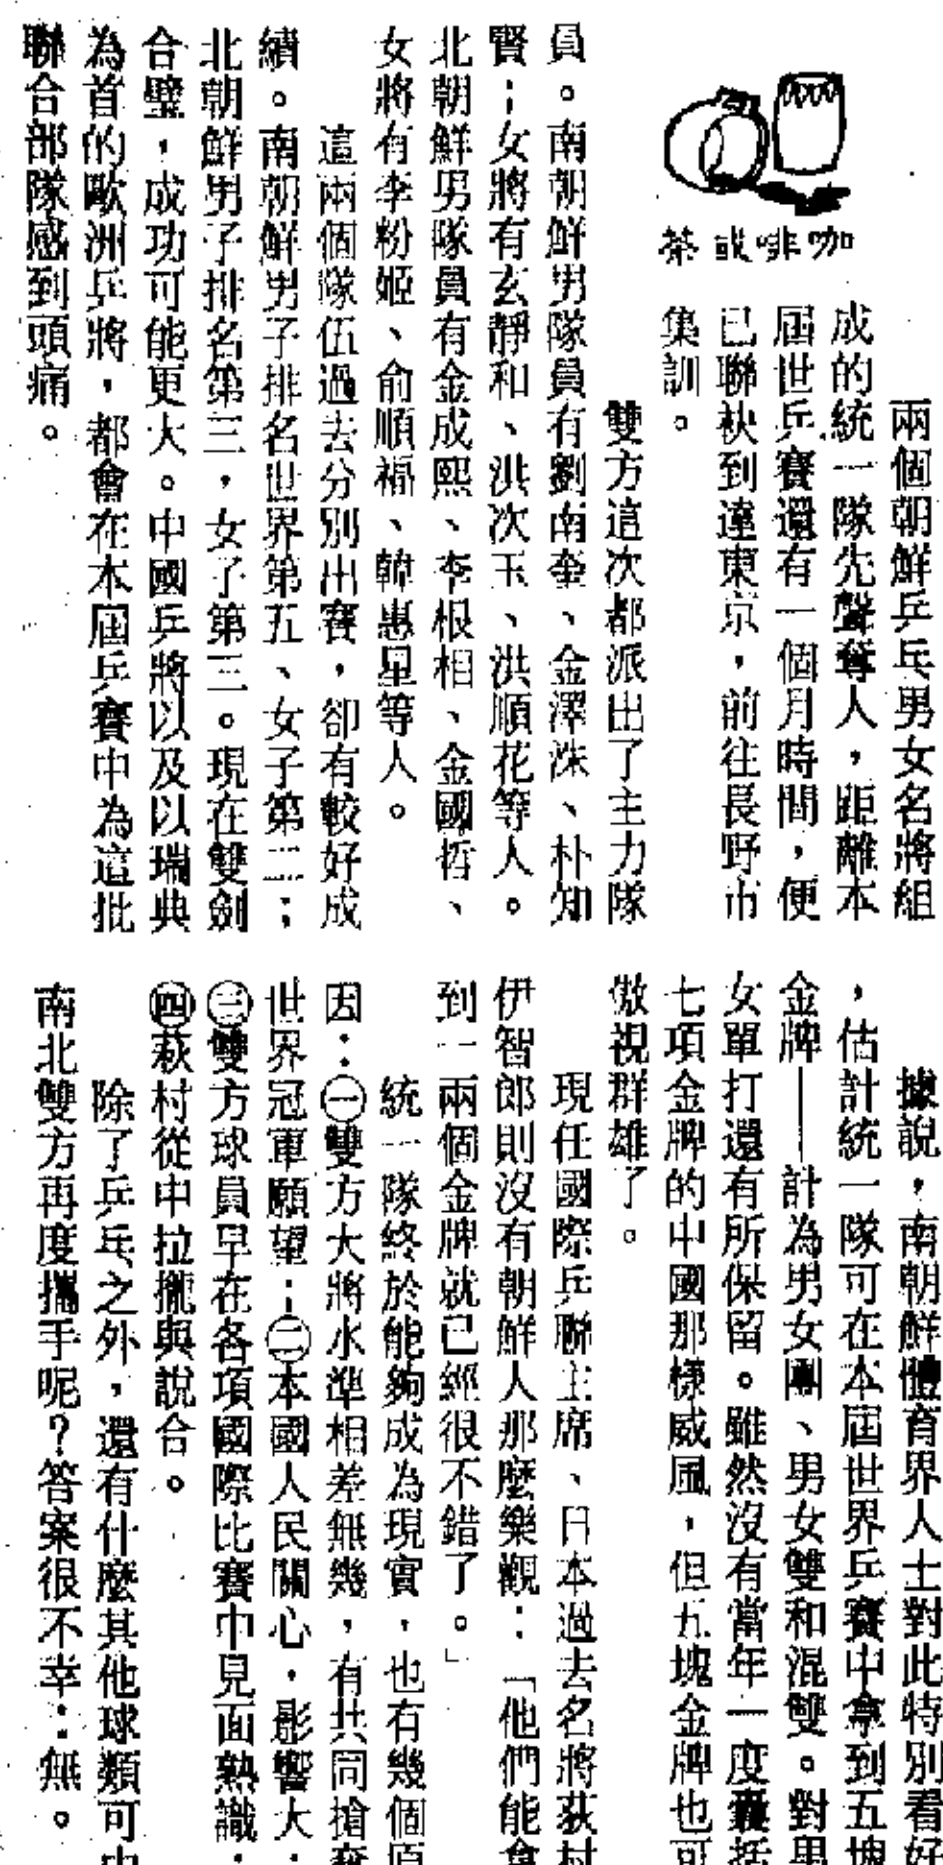 咖啡或茶
兩個朝鮮乒乓男女名將組
成的統一隊先聲奪人，距離本
屆世乒賽還有一個月時間，便
已聯袂到達東京，前往長野市
集訓。
雙方這次都派出了主力隊
員。南朝鮮男隊員有劉南奎、金澤洙、朴知
賢；女將有玄靜和、洪次玉、洪順花等人。
北朝鮮男隊員有金成熙、李根相、金國哲、
女將有李粉姬、俞順福、韓惠星等人。
這兩個隊伍過去分別出賽，卻有較好成
績。南朝鮮男子排名世界第五、女子第二；
北朝鮮男子排名第三，女子第三。現在雙劍
合璧，成功可能更大。中國乒將以及以瑞典
為首的歐洲乒將，都會在本屆乒賽中為這批
聯合部隊感到頭痛。
據說，南朝鮮體育界人士對此特別看好
，估計統一隊可在本屆世界乒賽中拿到五塊
金牌——計為男女團、男女雙和混雙。對男
女單打還有所保留。雖然沒有當年一度囊括
七項金牌的中國那樣威風，但五塊金牌也可
傲視群雄了。
現任國際乒聯主席、日本過去名將荻村
伊智郎則沒有朝鮮人那麼樂觀：「他們能拿
到一兩個金牌就已經很不錯了。」
統一隊終於能夠成為現實，也有幾個原
因：㊀雙方大將水準相差無幾，有共同搶奪
世界冠軍願望；㊁本國人民關心，影響大；
㊂雙方球員早在各項國際比賽中見面熟識；
㊃荻村從中拉攏與說合。
除了乒乓之外，還有什麼其他球類可由
南北雙方再度攜手呢？答案很不幸：無。